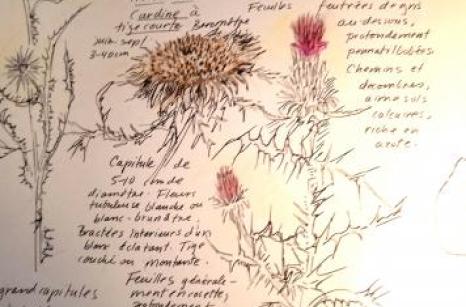 Cardine à
tige courte Baromètre
juin sept
3-40 cm
Feuilles feutrées de gris
au-dessous,
profondément
pennatilobées
Chemins et
décombres,
aime sols
calcaires,
riche en
azote.
Capitule de
5-10 cm de
diamètre. Fleurs
tubuleuse blanche ou
blanc-brunâtre.
Bractées interieurs d'un
blanc éclatant. Tige
couché ou montante.
Feuilles générale-
ment en rosette,
profondément
grand capitules